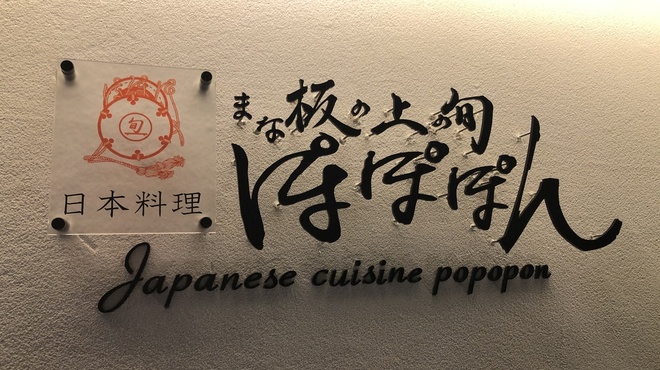 旬
日本料理
まな板の上の旬
ぽぽぽん
Japanese cuisine popopon